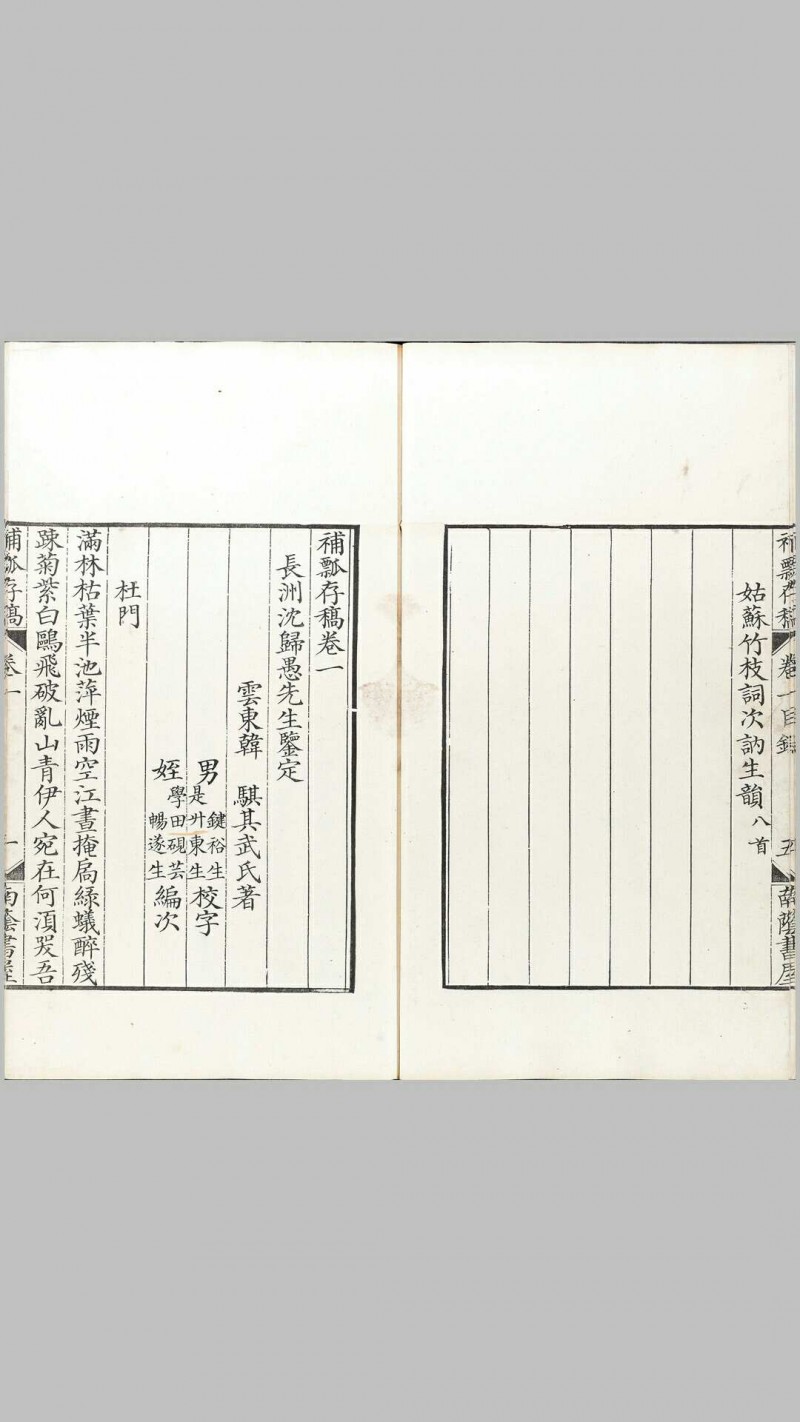 補瓢存稿 卷一目錄 五 南蔭書屋
姑蘇竹枝詞次訥生韻八首
補瓢存稿卷一
長洲沈歸愚先生鑒定
雲東韓 騏其武氏著
男 鍵裕生 是升東生 校字
姪 學田硯芸 暢遂生 編次
杜門
滿林枯葉半池萍煙雨空江晝掩扃綠蟻醉殘
踈菊紫白鷗飛破亂山青伊人宛在何湏哭吾
補瓢存稿 卷一 一 南蔭書屋